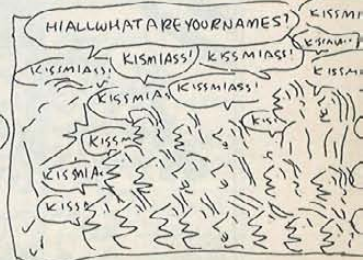 HIALLWHATAREYOURNAMES?
KISSMI
KISMIASS!
KISMIASS!
KISSMIASS!
KISSMIASS!
KISSMI
KISSMIAS
KISSMIASS!
KISSM
KISS
KISSMIA
KISS